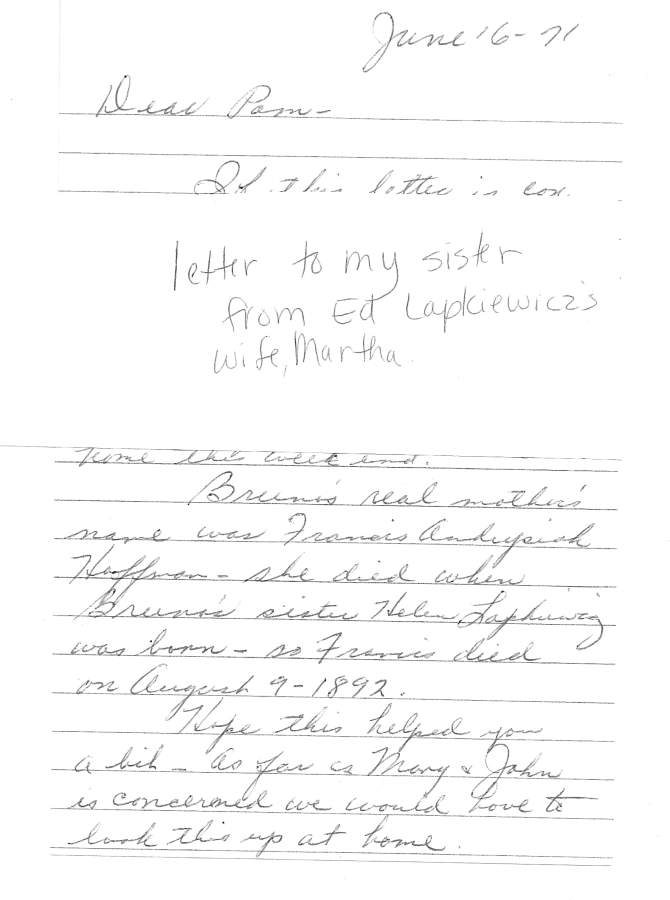 June 16-71
Dear Pam-
If this letter is con.
letter to my sister
from Ed Lapkiewicz's
wife, Martha.
home this week end.
Bruno's real mother's
name was Francis Andrysiak
Hoffman - she died when
Bruno's sister Helen Lapkiewicz
was born - so Francis died
on August 9-1892.
Hope this helped you
a bit - As far as Mary & John
is concerned we would have to
look this up at home.